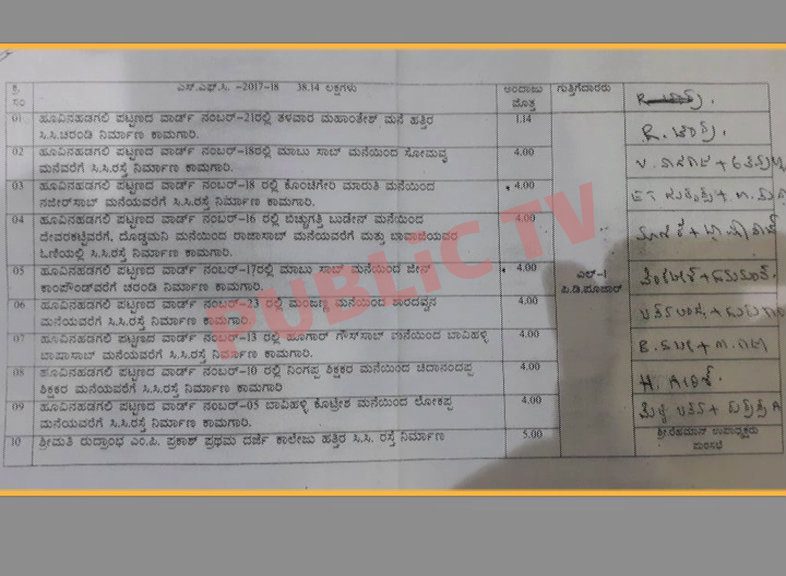 ಕ್ರ ಸಂ ಎಸ್.ಎಫ್.ಸಿ. -2017-18 38.14 ಲಕ್ಷಗಳು ಅಂದಾಜು ಮೊತ್ತ ಗುತ್ತಿಗೆದಾರರು
01 ಹೂವಿನಹಡಗಲಿ ಪಟ್ಟಣದ ವಾರ್ಡ್ ನಂಬರ್-21ರಲ್ಲಿ ತಳವಾರ ಮಹಾಂತೇಶ್ ಮನೆ ಹತ್ತಿರ 1.14
ಸಿ.ಸಿ.ಚರಂಡಿ ನಿರ್ಮಾಣ ಕಾಮಗಾರಿ.
02 ಹೂವಿನಹಡಗಲಿ ಪಟ್ಟಣದ ವಾರ್ಡ್ ನಂಬರ್-18ರಲ್ಲಿ ಮಾಬು ಸಾಬ್ ಮನೆಯಿಂದ ಸೋಮವ್ವ 4.00
ಮನೆವರೆಗೆ ಸಿ.ಸಿ.ರಸ್ತೆ ನಿರ್ಮಾಣ ಕಾಮಗಾರಿ.
03 ಹೂವಿನಹಡಗಲಿ ಪಟ್ಟಣದ ವಾರ್ಡ್ ನಂಬರ್-18 ರಲ್ಲಿ ಕೊಂಚಿಗೇರಿ ಮಾರುತಿ ಮನೆಯಿಂದ 4.00
ನಜೀರ್‌ಸಾಬ್ ಮನೆಯವರೆಗೆ ಸಿ.ಸಿ.ರಸ್ತೆ ನಿರ್ಮಾಣ ಕಾಮಗಾರಿ.
04 ಹೂವಿನಹಡಗಲಿ ಪಟ್ಟಣದ ವಾರ್ಡ್ ನಂಬರ್-16 ರಲ್ಲಿ ಬಿಚ್ಚುಗತ್ತಿ ಬುಡೇನ್ ಮನೆಯಿಂದ 4.00
ದೇವರಕಟ್ಟಿವರೆಗೆ, ದೊಡ್ಡಮನಿ ಮನೆಯಿಂದ ರಾಜಾಸಾಬ್ ಮನೆಯವರೆಗೆ ಮತ್ತು ಬಾವಾಜಿಯವರ
ಓಣಿಯಲ್ಲಿ ಸಿ.ಸಿ.ರಸ್ತೆ ನಿರ್ಮಾಣ ಕಾಮಗಾರಿ.
05 ಹೂವಿನಹಡಗಲಿ ಪಟ್ಟಣದ ವಾರ್ಡ್ ನಂಬರ್-17ರಲ್ಲಿ ಮಾಬು ಸಾಬ್ ಮನೆಯಿಂದ ಜೇನ್ 4.00
ಕಾಂಪೌಂಡ್‌ವರೆಗೆ ಚರಂಡಿ ನಿರ್ಮಾಣ ಕಾಮಗಾರಿ.
ಎಲ್-1
ಪಿ.ಡಿ.ಪೂಜಾರ್
06 ಹೂವಿನಹಡಗಲಿ ಪಟ್ಟಣದ ವಾರ್ಡ್ ನಂಬರ್-23 ರಲ್ಲಿ ಮಂಜಣ್ಣ ಮನೆಯಿಂದ ಶಾರದವ್ವನ 4.00
ಮನೆಯವರೆಗೆ ಸಿ.ಸಿ.ರಸ್ತೆ ನಿರ್ಮಾಣ ಕಾಮಗಾರಿ.
07 ಹೂವಿನಹಡಗಲಿ ಪಟ್ಟಣದ ವಾರ್ಡ್ ನಂಬರ್-13 ರಲ್ಲಿ ಹೂಗಾರ್ ಗೌಸ್‌ಸಾಬ್ ಮನೆಯಿಂದ ಬಾವಿಹಳ್ಳಿ 4.00
ಬಾಷಾಸಾಬ್ ಮನೆಯವರೆಗೆ ಸಿ.ಸಿ.ರಸ್ತೆ ನಿರ್ಮಾಣ ಕಾಮಗಾರಿ.
08 ಹೂವಿನಹಡಗಲಿ ಪಟ್ಟಣದ ವಾರ್ಡ್ ನಂಬರ್-10 ರಲ್ಲಿ ನಿಂಗಪ್ಪ ಶಿಕ್ಷಕರ ಮನೆಯಿಂದ ಚಿದಾನಂದಪ್ಪ 4.00
ಶಿಕ್ಷಕರ ಮನೆಯವರೆಗೆ ಸಿ.ಸಿ.ರಸ್ತೆ ನಿರ್ಮಾಣ ಕಾಮಗಾರಿ
09 ಹೂವಿನಹಡಗಲಿ ಪಟ್ಟಣದ ವಾರ್ಡ್ ನಂಬರ್-05 ಬಾವಿಹಳ್ಳಿ ಕೊಟ್ರೇಶ ಮನೆಯಿಂದ ಲೋಕಪ್ಪ 4.00
ಮನೆಯವರೆಗೆ ಸಿ.ಸಿ.ರಸ್ತೆ ನಿರ್ಮಾಣ ಕಾಮಗಾರಿ.
10 ಶ್ರೀಮತಿ ರುದ್ರಾಂಭ ಎಂ.ಪಿ. ಪ್ರಕಾಶ್ ಪ್ರಥಮ ದರ್ಜೆ ಕಾಲೇಜು ಹತ್ತಿರ ಸಿ.ಸಿ. ರಸ್ತೆ ನಿರ್ಮಾಣ 5.00
ಶ್ರೀ.ರೆಹಮಾನ್ ಉಪಾಧ್ಯಕ್ಷರು
ಪುರಸಭೆ
PUBLiC TV